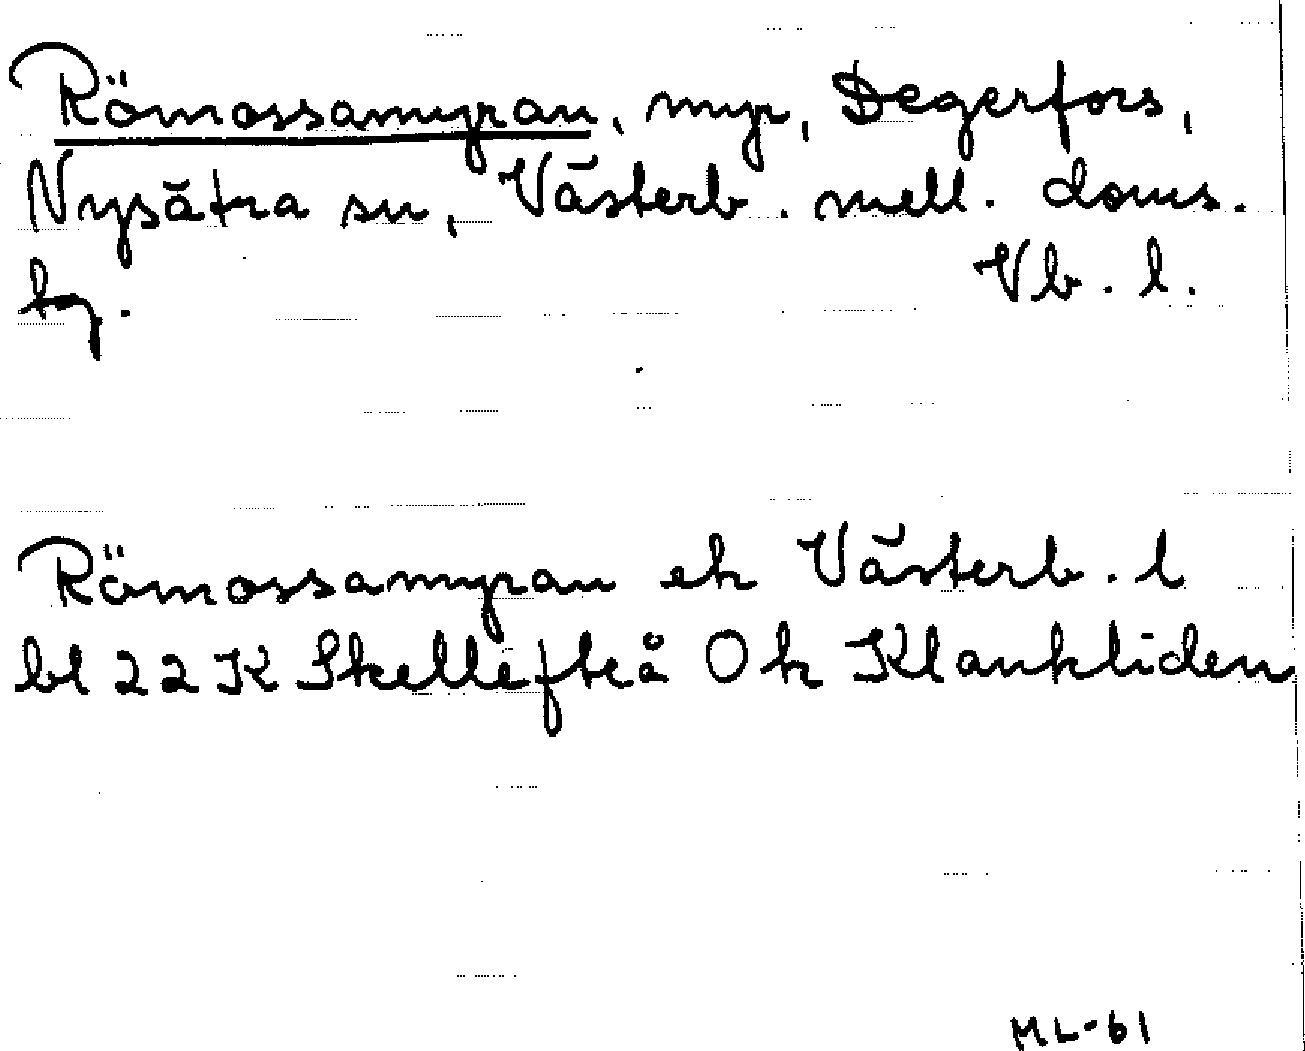 Römossamyran, myr, Degerfors,
Nysätra sn, Västerb. mell. doms.
tg. Vb. l.
Römossamyran ek Västerb. l
bl 22 K Skellefteå Ok Klankliden
ML-61